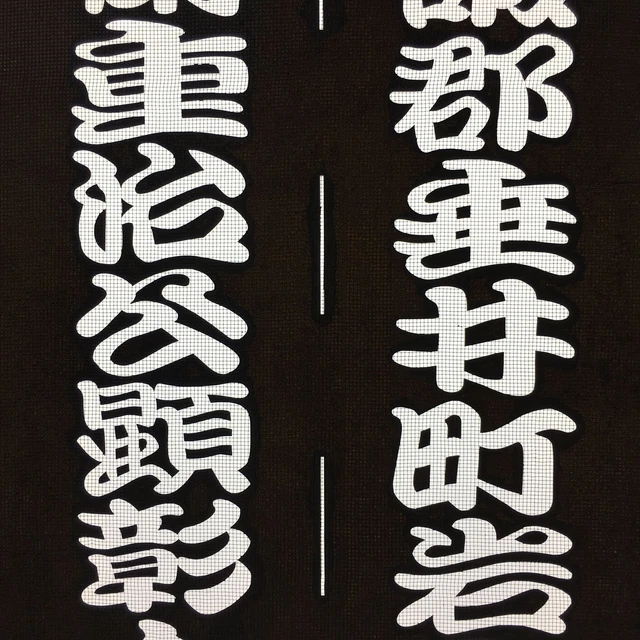 郡垂井町岩
重治公顕彰